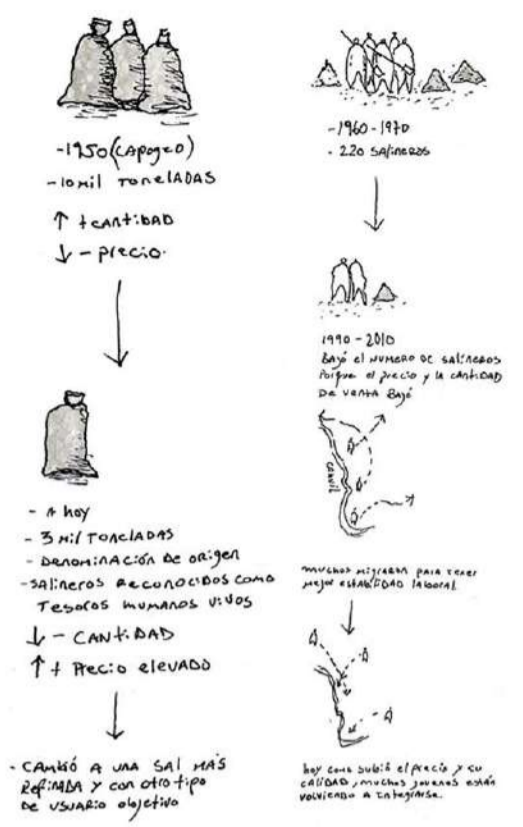 -1950 (Apogeo)
-10 mil toneladas
↑ + cantidad
↓ - precio.
- A hoy
- 3 mil toneladas
- Denominación de origen
- Salineros reconocidos como
Tesoros humanos vivos
↓ - cantidad
↑ + Precio elevado
- Cambió a una sal más
refinada y con otro tipo
de usuario objetivo
-1960-1970
- 220 salineros
1990-2010
Bajó el numero de salineros
Porque el precio y la cantidad
de venta bajó
cahuil
muchos migraron para tener
mejor estabilidad laboral.
hoy como subió el precio y su
calidad, muchos jovenes están
volviendo a integrarse.